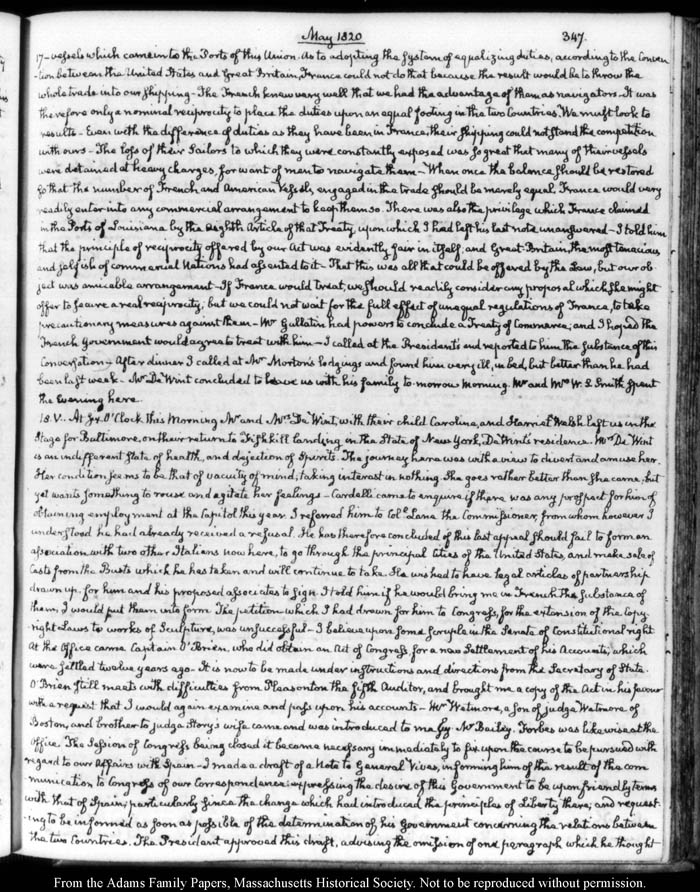 May 1820
347.
17 - vessels which came into the Ports of this Union. As to adopting the system of equalizing duties, according to the Conven-
-tion between the United States and Great Britain, France could not do that because the result would be to throw the
whole trade into our shipping - The French knew very well that we had the advantage of them as navigators - It was
therefore only a nominal reciprocity to place the duties upon an equal footing in the two Countries. We must look to
results - Even with the difference of duties as they have been in France, their shipping could not stand the competition
with ours - The loss of their Sailors to which they were constantly exposed was so great that many of their vessels
were detained at heavy charges, for want of men to navigate them - When once the balance should be restored
so that the number of French and American Vessels, engaged in the trade should be merely equal, France would very
readily enter into any commercial arrangement to keep them so. There was also the privilege which France claimed
in the Ports of Louisiana by the eighth Article of that Treaty, upon which I had left his last note unanswered - I told him
that the principle of reciprocity offered by our Act was evidently fair in itself, and Great-Britain, the most tenacious
and selfish of commercial Nations had assented to it - That this was all that could be offered by the Law, but our ob-
ject was amicable arrangement - If France would treat, we should readily consider any proposal which she might
offer to secure a real reciprocity; but we could not wait for the full effect of unequal regulations of France, to take
precautionary measures against them - Mr Gallatin had powers to conclude a Treaty of Commerce; and I hoped the
French Government would agree to treat with him - I called at the President's and reported to him the substance of this
Conversation - After dinner I called at Mr Morton's lodgings and found him very ill, in bed, but better than he had
been last week - Mr De Wint concluded to leave us with his family to-morrow morning. Mr and Mrs W. S. Smith spent
the Evening here.
18. V. At O'Clock this Morning Mr and Mrs De Wint, with their child Caroline, and Harriet Welsh left us in the
Stage for Baltimore, on their return to Fishkill Landing in the State of New York, De Wint's residence. Mrs De Wint
is an indifferent state of health, and dejection of Spirits. The journey here was with a view to divert and amuse her.
Her condition seems to be that of vacuity of mind, taking interest in nothing. She goes rather better than she came; but
yet wants something to rouse and agitate her feelings - Cardelli came to enquire if there was any prospect for him of
obtaining employment at the Capitol this year. I referred him to Colo. Lane the Commissioner, from whom however I
understood he had already received a refusal. He has therefore concluded if this last appeal should fail to form an
association with two other Italians now here, to go through the principal Cities of the United States, and make sale of
Casts from the Busts which he has taken and will continue to take. He wished to have legal articles of partnership
drawn up for him and his proposed associates to sign. I told him if he would bring me in French the substance of
them, I would put them into form. The petition which I had drawn for him to Congress, for the extension of the Copy-
right Laws to works of Sculpture, was unsuccessful - I believe upon some scruple in the Senate of Constitutional right
At the Office came Captain O'Brien, who did obtain an Act of Congress for a new Settlement of his Accounts, which
were settled twelve years ago - It is now to be made under instructions and directions from the Secretary of State.
O'Brien still meets with difficulties from Pleasonton the fifth Auditor, and brought me a copy of the Act in his favour
with a request that I would again examine and pass upon his accounts - Mr Wetmore, a son of judge Wetmore of
Boston, and brother to judge Story's wife came and was introduced to me by Mr Bailey. Forbes was likewise at the
Office. The Session of Congress being closed it became necessary immediately to fix upon the course to be pursued with
regard to our affairs with Spain - I made a draft of a Note to General Vives, informing him of the result of the com-
munication to Congress of our Correspondence: expressing the desire of this Government to be upon friendly terms
with that of Spain, particularly since the change which had introduced the principles of Liberty there; and request-
ing to be informed as soon as possible of the determination of his Government concerning the relations between
the two Countries. The President approved this draft, advising the omission of one paragraph which he thought
From the Adams Family Papers, Massachusetts Historical Society. Not to be reproduced without permission.